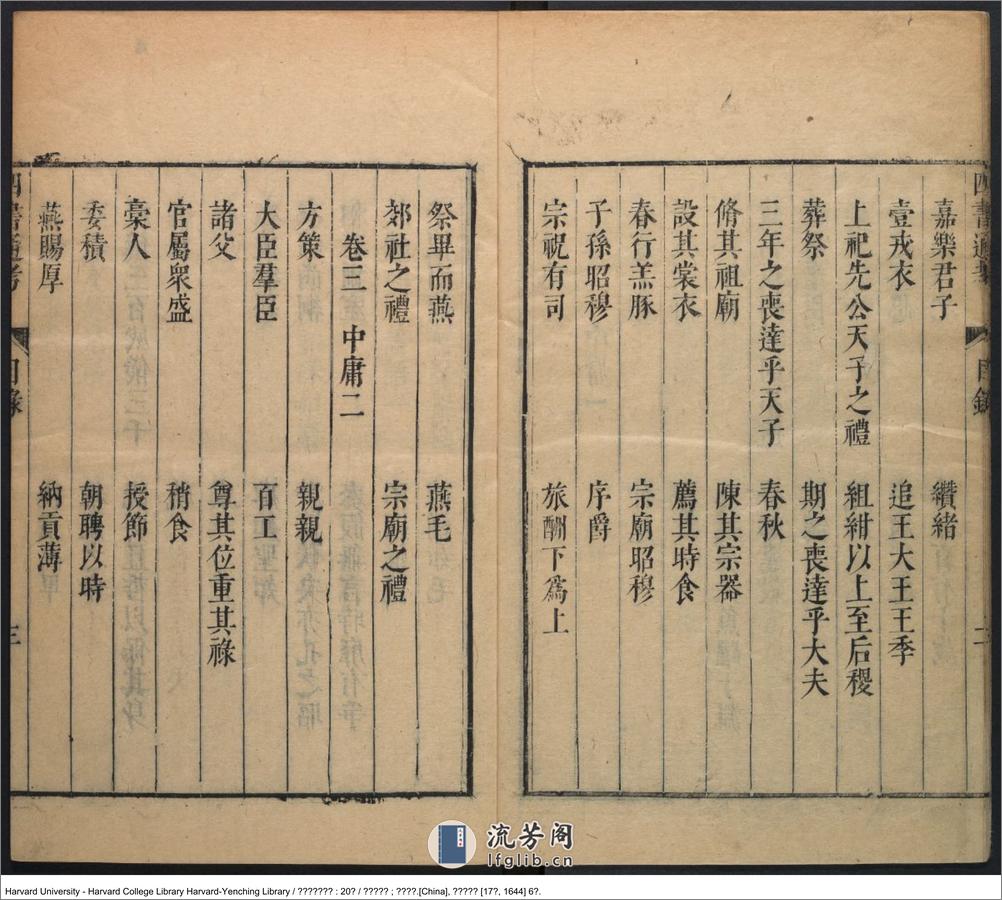 四書通考 目錄 二
嘉樂君子 纘緒
壹戎衣 追王大王王季
上祀先公天子之禮 組紺以上至后稷
葬祭 期之喪達乎大夫
三年之喪達乎天子 春秋
脩其祖廟 陳其宗器
設其裳衣 薦其時食
春行羔豚 宗廟昭穆
子孫昭穆 序爵
宗祝有司 旅酬下爲上
祭畢而燕 燕毛
郊社之禮 宗廟之禮
卷三 中庸二
方策 親親
大臣羣臣 百工
諸父 尊其位重其祿
官屬衆盛 稍食
槀人 授節
委積 朝聘以時
燕賜厚 納貢薄
四書通考 目錄 三
流芳阁
lfglib.cn
Harvard University - Harvard College Library Harvard-Yenching Library / ??????? : 20? / ????? ; ????.[China], ????? [17?, 1644] 6?.